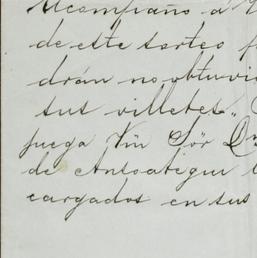 Acompaño a V
de este sorteo
drán no obtuvi
sus villetes"
juega Vin Sör
de Ansoategui
cargados en sus